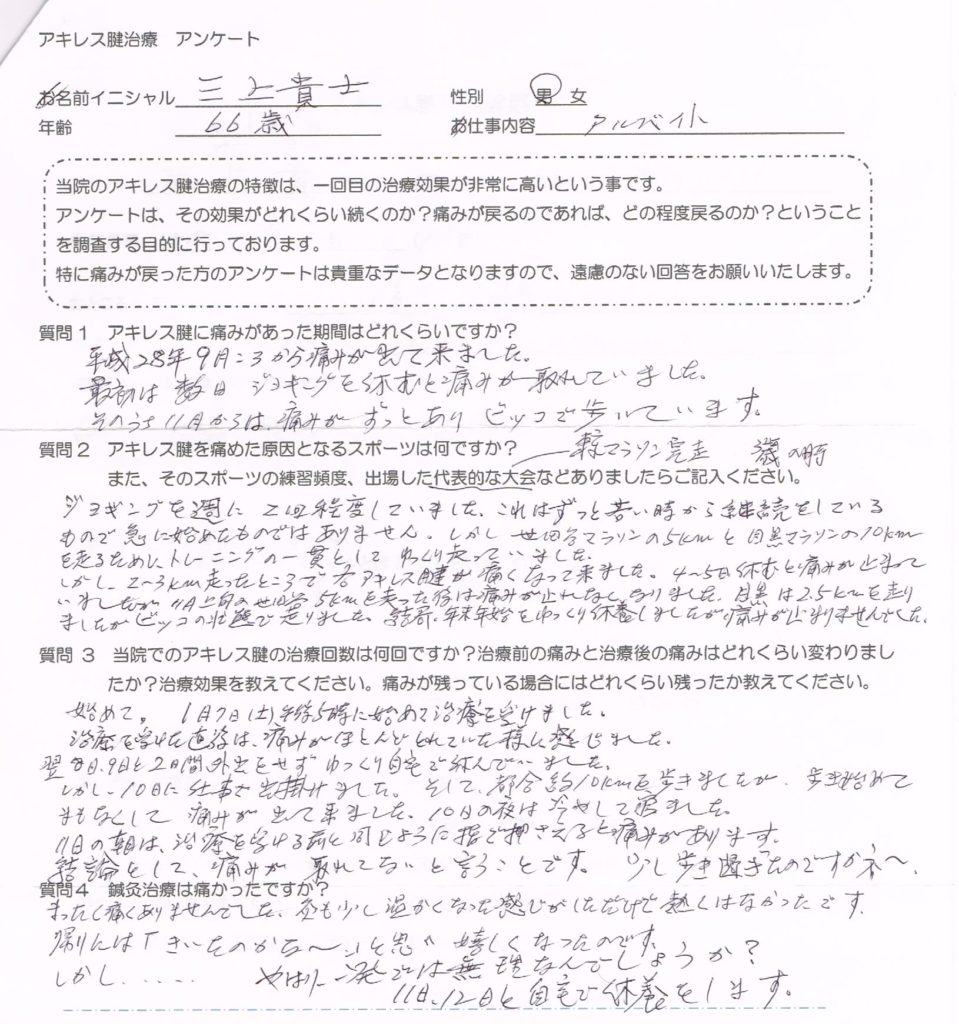 アキレス腱治療 アンケート
お名前イニシャル 三上貴士 性別 男 女
年齢 66歳 お仕事内容 アルバイト
当院のアキレス腱治療の特徴は、一回目の治療効果が非常に高いという事です。
アンケートは、その効果がどれくらい続くのか?痛みが戻るのであれば、どの程度戻るのか?ということ
を調査する目的に行っております。
特に痛みが戻った方のアンケートは貴重なデータとなりますので、遠慮のない回答をお願いいたします。
質問1 アキレス腱に痛みがあった期間はどれくらいですか?
平成28年9月ころから痛みが出て来ました。
最初は数日ジョギングを休むと痛みが取れていました。
そのうち11月からは、痛みがずっとあり ビッコで歩いています。
質問2 アキレス腱を痛めた原因となるスポーツは何ですか?
マラソン完走 の時
また、そのスポーツの練習頻度、出場した代表的な大会などありましたらご記入ください。
ジョギングを週に2回程度していました。これはずっと若い時から継続をしている
もので急に始めたものではありません。しかし世田谷マラソンの5kmと目黒マラソンの10km
を走るためにトレーニングの一貫としてゆっくり走っていました。
しかし、2~3km走ったところで右アキレス腱が痛くなって来ました。4~5日休むと痛みが止まって
いましたが11月上旬の世田谷5kmを走った後は痛みが止れなくなりました。目黒は2.5kmを走り
ましたがビッコの状態で走りました。結局、年末年始をゆっくり休養しましたが痛みが止まりませんでした。
質問3 当院でのアキレス腱の治療回数は何回ですか?治療前の痛みと治療後の痛みはどれくらい変わりまし
たか?治療効果を教えてください。痛みが残っている場合にはどれくらい残ったか教えてください。
始めて。 1月7日(土)午後5時に始めて治療を受けました。
治療を受けた直後は、痛みがほとんどとれていた様に感じました。
翌8日、9日と2日間、外出をせずゆっくり自宅で休んでいました。
しかし、10日に仕事で出掛けました。そして、都合約10kmを歩きましたが、歩き始めて
まもなくして痛みが出て来ました。10日の夜は冷やして寝ました。
11日の朝は、治療を受ける前と同じように指で押さえると痛みがあります。
結論として、痛みが取れてないと言うことです。少し歩き過ぎたのですかネ~。
質問4 鍼灸治療は痛かったですか?
まったく痛くありませんでした、灸も少し温かくなった感じがしただけで熱くはなかったです。
帰りには「きいたのかな~」と思い嬉しくなったのです。
しかし..... やはり一発では無理なんでしょうか?
11日、12日と自宅で休養をします。